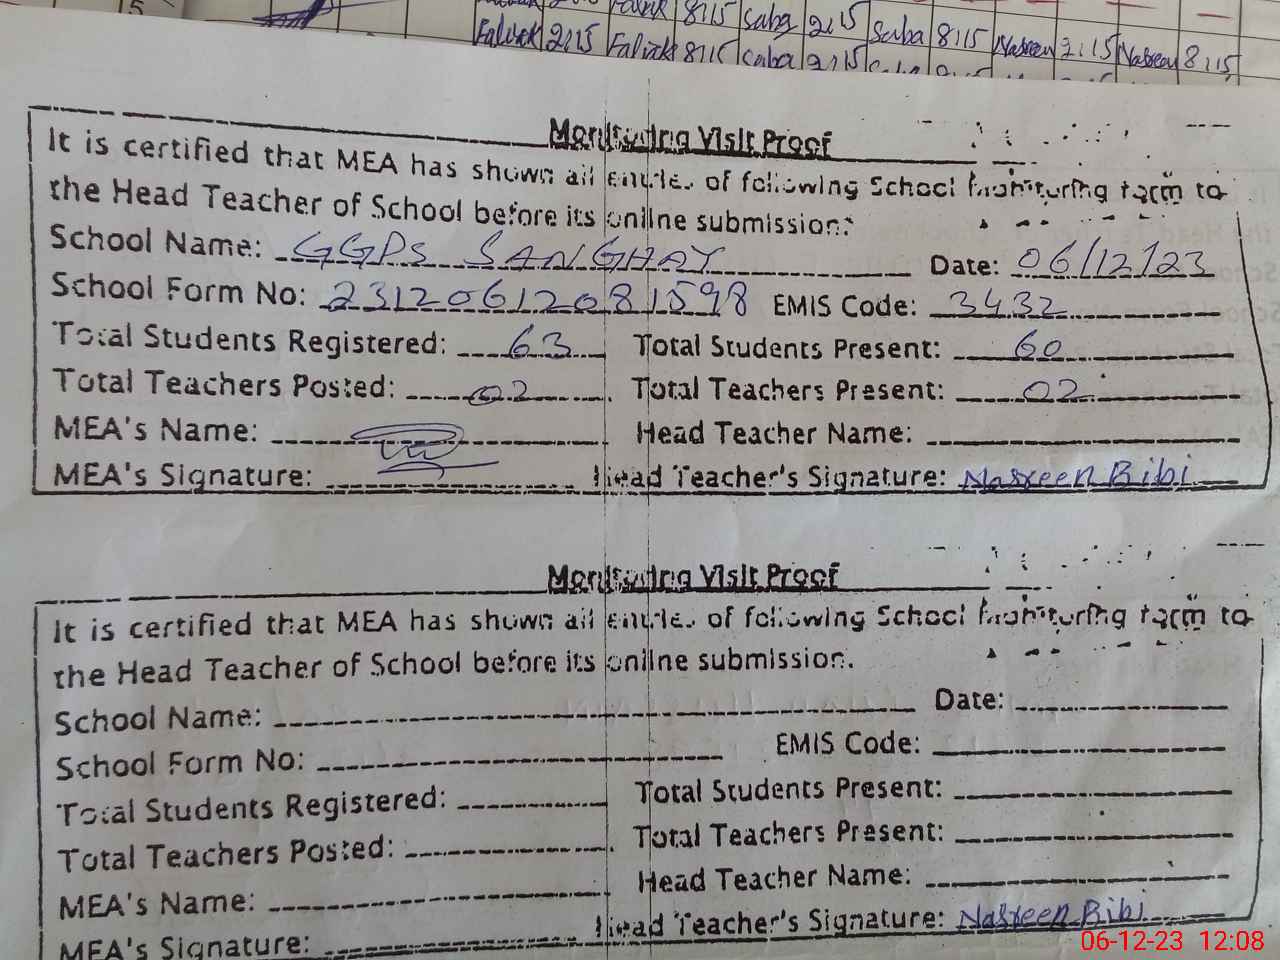 Faliak 2:15 Faliak 8:15 Saba 2:15 Saba 8:15 Nasreen 2:15 Nasreen 8:15
Monitoring Visit Proof
It is certified that MEA has shown all entries of following School Monitoring form to
the Head Teacher of School before its online submission:
School Name: GGPS SANGHAY Date: 06/12/23
School Form No: 23120612081598 EMIS Code: 3432
Total Students Registered: 63 Total Students Present: 60
Total Teachers Posted: 02 Total Teachers Present: 02
MEA's Name: Head Teacher Name:
MEA's Signature: Head Teacher's Signature: Nasreen Bibi
Monitoring Visit Proof
It is certified that MEA has shown all entries of following School Monitoring form to
the Head Teacher of School before its online submission.
School Name: Date:
School Form No: EMIS Code:
Total Students Registered: Total Students Present:
Total Teachers Posted: Total Teachers Present:
MEA's Name: Head Teacher Name:
MEA's Signature: Head Teacher's Signature: Nasreen Bibi
06-12-23 12:08